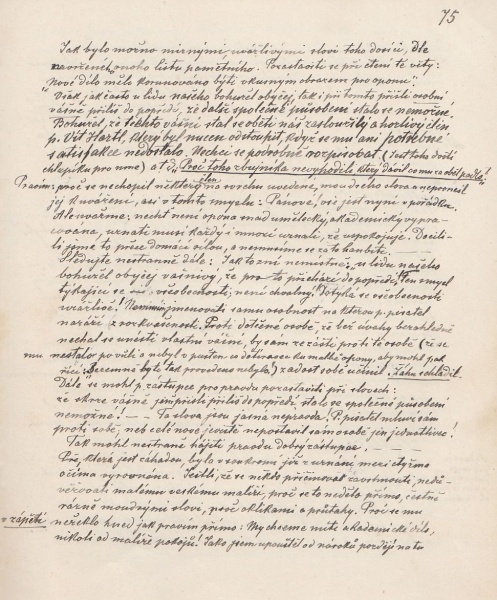 75
Jak bylo možno mírnými, uvážlivými slovi toho docíliti, dle
navrženého onoho listu památného. Pozastavte se při čtení té věty:
"Nové dílo mělo korunováno býti vkusným obrazem pro oponu."
Však jak často u lidu našeho bohužel obyčej, tak i při tomto přišli osobní
vášně příliš do popředí, že další společné působení stalo se nemožné.
Bohužel, že těchto vášní stal se obětí náš zasloužilý a horlivý člen
p. Vít Hartl, který byl nucen odstoupiti, když se mu ani potřebné
satisfakce nedostalo. Nechci se podrobně rozpisovat (Jest toho dosti
chlapíku pro mne) a t d. "Proč toho zbujníka nevyhodíte který dávíl co mu za obil padlo!"
Pravím: proč se nechopil některý člen na svrchu uvedené, moudrého slova a nepronesl
jej k uvážení, asi v tomto smyslu: Panové, vše jest nyní v pořádku.
Ale uvažme: nechť není opona snad umělecky, akademicky vypra-
covana, uznati musí každý i mnozí uznali, že uspokojuje. Docíli-
li jsme to práce domácí silou, a nemusíme se za to hanbiti. — —
Sledujte nestranně dále: Jak to zní nemístně, "u lidu našeho
bohužel obyčej vášnivý, že pro to přichází do popředí." Ten smysl
týkající se vší všeobecnosti, není chvalný. Dotýka se osobnosti
urážlivě! jmenovati samu osobnost na kterou p. pisatel
naráží z rozkvašenosti. Proti dotčené osobě, že bez úvahy bezohledně
nechal se unésti vlastní vášní, by sám řezáti proti té osobě (že se
mu nestalo po vůli a nebyl v puštěn co dělovosce ku malbě opony, aby mohl pak
říci: Bezemně byla tak provedena nebyla) zadost sobě učinil. Žáhu schladil.
Dále se mohl p. zástupce pro pravdu pozastaviti při slovech:
že skrze vášně jenž přišli příliš do popředí stalo se společné působení
nemožné! — To slova jsou jasná nepravda! P. pisatel mluví sám
proti sobě, neb celé nové jeviště nepostavil sám sobě jen jednotlivec!
Tak mohl nestranně hájiti pravdu dobrý zástupce. — —
Pře, která jest záhadou, byla v soukromí již z uznání mezi čtyřmi
očima vyrovnána. Jestli, že se někdo přičiňoval závistností, nedů-
věřovati malému českému malíři, proč se to nedělo přímo, čestně
razně moudrými slovi, proč oklikami a průtahy. Proč se mu
v zápětí neřeklo hned jak pravím přímo: My chceme míti akademické dílo,
nikoli od malíře pokojů! Jako jsem upouštěl od nároků později na tu